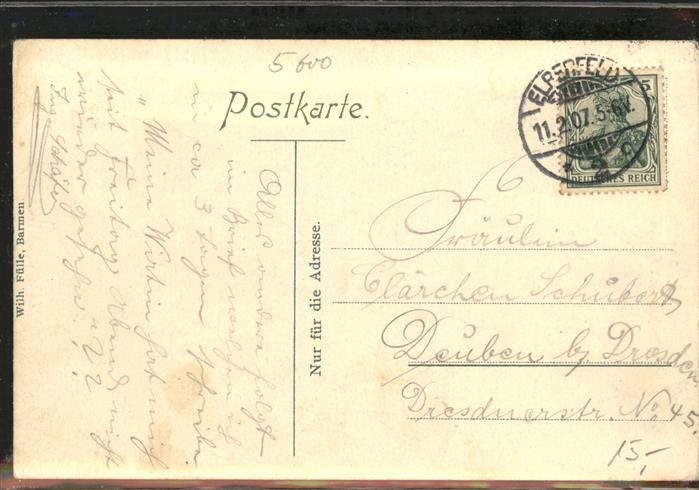 5600
Postkarte.
ELBERFELD
11.2.07.5-6N.
* 2 c
5
DEUTSCHES REICH
Alles andere folgt
im Brief welchen ich
in ca 3 Tagen schreibe
"Meine Wirtin hat mich
seit Freitag Abend nicht
wieder gesehn"!??
Ing. Schäfer
Wilh. Fülle, Barmen
Nur für die Adresse.
Fräulein
Clärchen Schubert
Deuben b/ Dresden
Dresdnerstr. No 45.
15,-